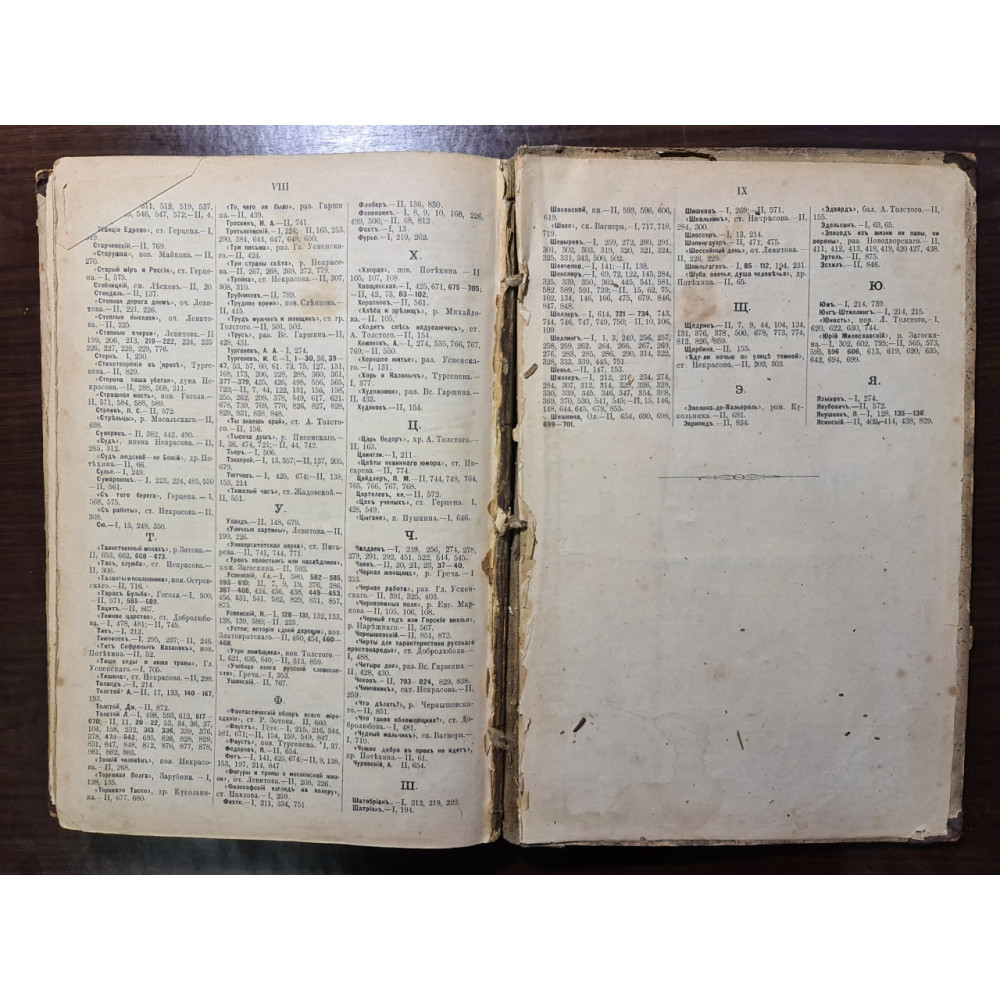 VIII
511, 512, 519, 537,
546, 547, 572;—II, 4,
Едрово», ст. Герцена.—I,
Старчевскій.—II, 769.
«Старушка», поэ. Майкова.—II,
270.
«Старый міръ и Россія», ст. Герцена.—I, 575.
Стебницкій, см. Лѣсковъ.—II, 20.
Стендаль.—II, 137.
«Степная дорога днемъ», оч. Левитова.—II, 221, 226.
«Степные выселки», оч. Левитова.—II, 225.
«Степные очерки», Левитова.—II
199, 206, 213, 219—222, 224, 225
226, 227, 228, 329, 776.
Стернъ.—I, 230.
«Стихотворенія въ прозѣ», Тургенева.—II, 829.
«Сторона наша убогая», дума Некрасова.—II, 288, 308, 311.
«Страшная месть», пов. Гоголя.—
II, 571, 584, 588, 589.
Строевъ, П. С.—II, 572.
«Стрѣльцы», р. Масальскаго.—II,
698.
Суворинъ.—II, 382, 442, 490.
«Судъ», поэма Некрасова.—II,
285, 312.
«Судъ людской—не Божій», др. Потѣхина.—II, 66.
Сулье.—I, 249.
Сумароковъ.—I, 223, 224, 485, 530
—II, 561.
«Съ того берега», Герцена.—I,
568, 575.
«Съ работы», ст. Некрасова.—II,
308.
Сю.—I, 13, 249, 350.
Т.
«Таинственный монахъ», р. Зотова.—
II, 653, 662, 668—673.
«Такъ, служба», ст. Некрасова.—
II, 306.
«Таланты и поклонники», ком. Островскаго.—II, 716.
«Тарасъ Бульба», Гоголя.—I, 500,
—II, 571, 585—589.
Тацитъ.—II, 867.
«Темное царство», ст. Добролюбова.—I, 478, 481;—II, 745.
Тикъ.—I, 212.
Тимоѳеевъ.—I, 295, 297;—II, 246.
«Титъ Софроновъ Козонокъ», пов.
Потѣхина.—II, 52.
«Тише воды и ниже травы», Гл.
Успенскаго.—I, 705.
«Тишина», ст. Некрасова.—II, 298.
Толандъ.—I, 214.
Толстой А.—II, 17, 133, 140—167,
193.
Толстой, Дм.—II, 872.
Толстой Л.—I, 498, 593, 612, 617—
670;—II, 11, 20—22, 53, 34, 36, 37,
104, 158, 232, 313 336, 339, 376,
378, 470—542, 695, 826, 828, 829,
831, 847, 848, 872, 876, 877, 878,
881, 882, 883.
«Тонкій человѣкъ», пов. Некрасова.—II, 268.
«Торговая Волга», Зарубина.—I,
128, 135.
«Торквато Тассо», др. Кукольника.—II, 677, 680.
«То, чего не было», раз. Гаршина.—II, 439.
Трескинъ, Н. А.—II, 741.
Третьяковскій.—I, 224;—II, 165, 253,
290, 384, 644, 647, 648, 650.
«Три письма», раз. Гл. Успенскаго.—II, 424.
«Три страны свѣта», р. Некрасова.—II, 267, 268, 269, 272, 779.
«Тройка», ст. Некрасова.—II, 307,
308, 310.
Трубниковъ.—II, 789.
«Трудное время», пов. Слѣпцова.
—II, 415.
«Трудъ мужчинъ и женщинъ», ст. гр.
Толстого.—II, 501, 502.
«Трусъ», раз. Вс. Гаршина.—II,
428, 431.
Тургеневъ, А. А.—I, 274.
Тургеневъ, И. С.—I, 1—30, 36, 39—
47, 53, 57, 60, 61, 73, 75, 127, 131,
168, 173, 206, 228, 288, 360, 361,
377—379, 425, 426, 498, 556, 565,
723;—II, 7, 44, 122, 131, 156, 158,
255, 262, 299, 378, 549, 617, 621,
678, 739, 769, 770, 826, 827, 828,
829, 831, 838, 848.
«Ты знаешь край», ст. А. Толстого.—II, 156.
«Тысяча душъ», р. Писемскаго.—
I, 36, 474, 721;—II, 44, 742.
Тьеръ.—I, 506.
Тэккерей.—I, 13, 357;—II, 137, 205,
679.
Тютчевъ.—I, 425, 674;—II, 138,
153, 214
«Тяжелый часъ», ст. Жадовской.—
II, 551.
У.
Уландъ.—II, 148, 679.
«Уличныя картины», Левитова.—II,
199, 226.
«Университетская наука», ст. Писарева.—II, 741, 744, 771.
«Урокъ холостымъ или наслѣдники»,
ком. Загоскина.—II, 592.
Успенскій, Гл.—I, 580, 582—585,
593—610; II, 7, 9, 19, 376, 386,
387—408, 424, 436, 438, 449—453,
456, 531, 541, 582, 829, 831, 857,
875.
Успенскій, Н.—I, 128—131, 132, 133,
138, 139, 580;—II, 233.
«Устои, исторія одной деревни», пов.
Златовратскаго.—II, 450, 454, 460—
468.
«Утро помѣщика», пов. Толстого.—
I, 621, 635, 640;—II, 513, 859.
«Учебная книга русской словесности», Греча.—I, 353.
Ушинскій.—II, 767.
Ф.
«Фантастическій обзоръ всего мірозданія», ст. Р. Зотова. II, 660.
«Фаустъ», Гёте.—I, 215, 216, 344,
581, 671;—II, 154, 159, 549, 847.
«Фаустъ», пов. Тургенева.—I, 37.
Федоровъ, Б.—II, 654.
Фетъ.—I, 141, 425, 674;—II, 9, 138,
153, 197, 214, 847
«Фигуры и тропы о московской жизни», оч. Левитова.—II, 208, 226.
«Философскій взглядъ на холеру»,
ст. Павлова.—I, 259.
Фихте.—I, 211, 334, 751
Флоберъ.—II, 136, 830.
Фонвизинъ.—I, 8, 9, 10, 168, 226,
499, 506;—II, 68, 812
Фохтъ.—I, 13.
Фурье.—I, 219, 262.
Х.
«Хворая», пов. Потѣхина.—II
Хвощинская.—I, 425, 671, 675—705;
—II, 42, 73, 83—102.
Херасковъ.—II, 561.
«Хлѣба и зрѣлищъ», р. Михайлова.—II, 105.
«Ходитъ спѣсь надуваючись», ст.
А. Толстого.—II, 154.
Хомяковъ, А.—I, 274, 535, 766, 767,
769;—II, 550.
«Хорошее житье», раз. Успенскаго.—I, 131.
«Хорь и Калинычъ», Тургенева.—
I, 377.
«Художники», раз. Вс. Гаршина.—
II, 433.
Худяковъ.—II, 154.
Ц.
«Царь Ѳедоръ», хр. А. Толстого.—
II, 163.
Цвингли.—I, 211.
«Цвѣты невиннаго юмора», ст. Писарева.—II, 774.
Цейдлеръ, П. М.—II, 744, 748, 764,
765, 766, 767, 768.
Цертелевъ, кн.—II, 572.
«Цехъ ученыхъ», ст. Герцена. I,
428, 549.
«Цыгане», п. Пушкина.—I, 646.
Ч.
Чаадаевъ.—I, 239, 256, 274, 278,
279, 291, 292, 451, 522, 544, 545.
Чаевъ.—II, 20, 21, 23, 37—40.
«Черная женщина», р. Греча.—I
353.
«Черная работа», раз. Гл. Успенскаго.—II, 391, 325, 403.
«Черноземныя поля», р. Евг. Маркова.—II, 105, 106, 108.
«Черный годъ или Горскіе князья»,
р. Нарѣжнаго.—II, 567.
Чернышевскій.—II, 851, 872.
«Черты для характеристики русскаго
простонародья», ст. Добролюбова.—
I, 488.
«Четыре дня», раз. Вс. Гаршина.—
II, 428, 430.
Чеховъ.—II, 793—824, 829, 838.
«Чиновникъ», сат. Некрасова.—II,
259.
«Что дѣлать?», р. Чернышевскаго.—II, 851.
«Что такое обломовщина?», ст. Добролюбова.—I, 481.
«Чудный мальчикъ», ск. Вагнера.—
I, 710.
«Чужое добро въ прокъ не идетъ»,
др. Потѣхина.—II, 61.
Чуровскій, А.—II, 654.
Ш.
Шатобріанъ.—I, 212, 219, 222.
Шатріанъ.—I, 194.
IX
Шаховской, кн.—II, 593, 596, 606,
619.
«Швея», ск. Вагнера.—I, 717, 718,
719.
Шевыревъ.—I, 259, 272, 280, 291,
301, 302, 319, 320, 321, 320, 324,
325, 331, 343, 500, 502.
Шевченко.—I, 141;—II, 138.
Шекспиръ.—I, 68, 72, 122, 145, 284,
325, 339, 350, 362, 445, 541, 581,
582, 589, 591, 739;—II, 15, 62, 75,
102, 134, 146, 166, 475, 679, 846,
847, 848.
Шеллеръ.—I, 614, 721—734, 743,
744, 746, 747, 749, 750;—II, 10, 106,
109.
Шеллингъ.—I, 1, 3, 249, 256, 257,
258, 259, 262, 264, 266, 267, 269,
276, 283, 285, 286, 290, 314, 322,
328, 333, 339, 445, 751.
Шенье.—II, 147, 153.
Шиллеръ.—I, 212, 216, 234, 274,
284, 307, 312, 314, 325, 326, 329,
330, 339, 345, 346, 347, 354, 368,
369, 370, 530, 541, 545;—II, 15, 146,
148, 644, 645, 679, 855.
Шишкина, Ол.—II, 654, 690, 698,
699—701.
Шишковъ.—I, 269;—II, 571.
«Школьникъ», ст. Некрасова.—II,
284, 300.
Шлоссеръ.—I, 13, 214.
Шопенгауэръ.—II, 471, 475.
«Шоссейный день», оч. Левитова.—
II, 226, 229.
Шпильгагенъ.—I, 85—112, 194, 231.
«Шуба овечья, душа человѣчья», др.
Потѣхина.—II, 65.
Щ.
Щедринъ.—II, 7, 9, 44, 104, 124,
131, 376, 378, 500, 678; 773, 774,
812, 826, 859.
Щербина.—II, 155.
«Ѣду-ли ночью по улицѣ темной»,
ст. Некрасова.—II, 209, 303.
Э.
«Эвелина-де-Вальероль», ром. Кукольника.—II, 681.
Эврипидъ.—II, 834.
«Эдвардъ», бал. А. Толстого.—II,
155.
Эдельсонъ.—I, 63, 65.
«Эпизодъ изъ жизни ни павы, ни
вороны», раз. Новодворскаго.—II,
411, 412, 413, 418, 419, 420 427, 438.
Эртель.—II, 875.
Эсхилъ.—II, 846.
Ю.
Юмъ.—I, 214, 739.
Юнгъ-Штиллингъ.—I, 214, 215.
«Юность», пов. Л. Толстого.—I,
620, 622, 630, 744.
«Юрій Милославскій», Загоскина.—I, 302, 602, 725;—II, 565, 573,
595, 596 606, 613, 619, 620, 635,
642, 694, 699.
Я.
Языковъ.—I, 274.
Якубовичъ.—II, 572.
Якушкинъ, П.—I, 128, 135—136.
Ясинскій.—II, 409—414, 438, 829.